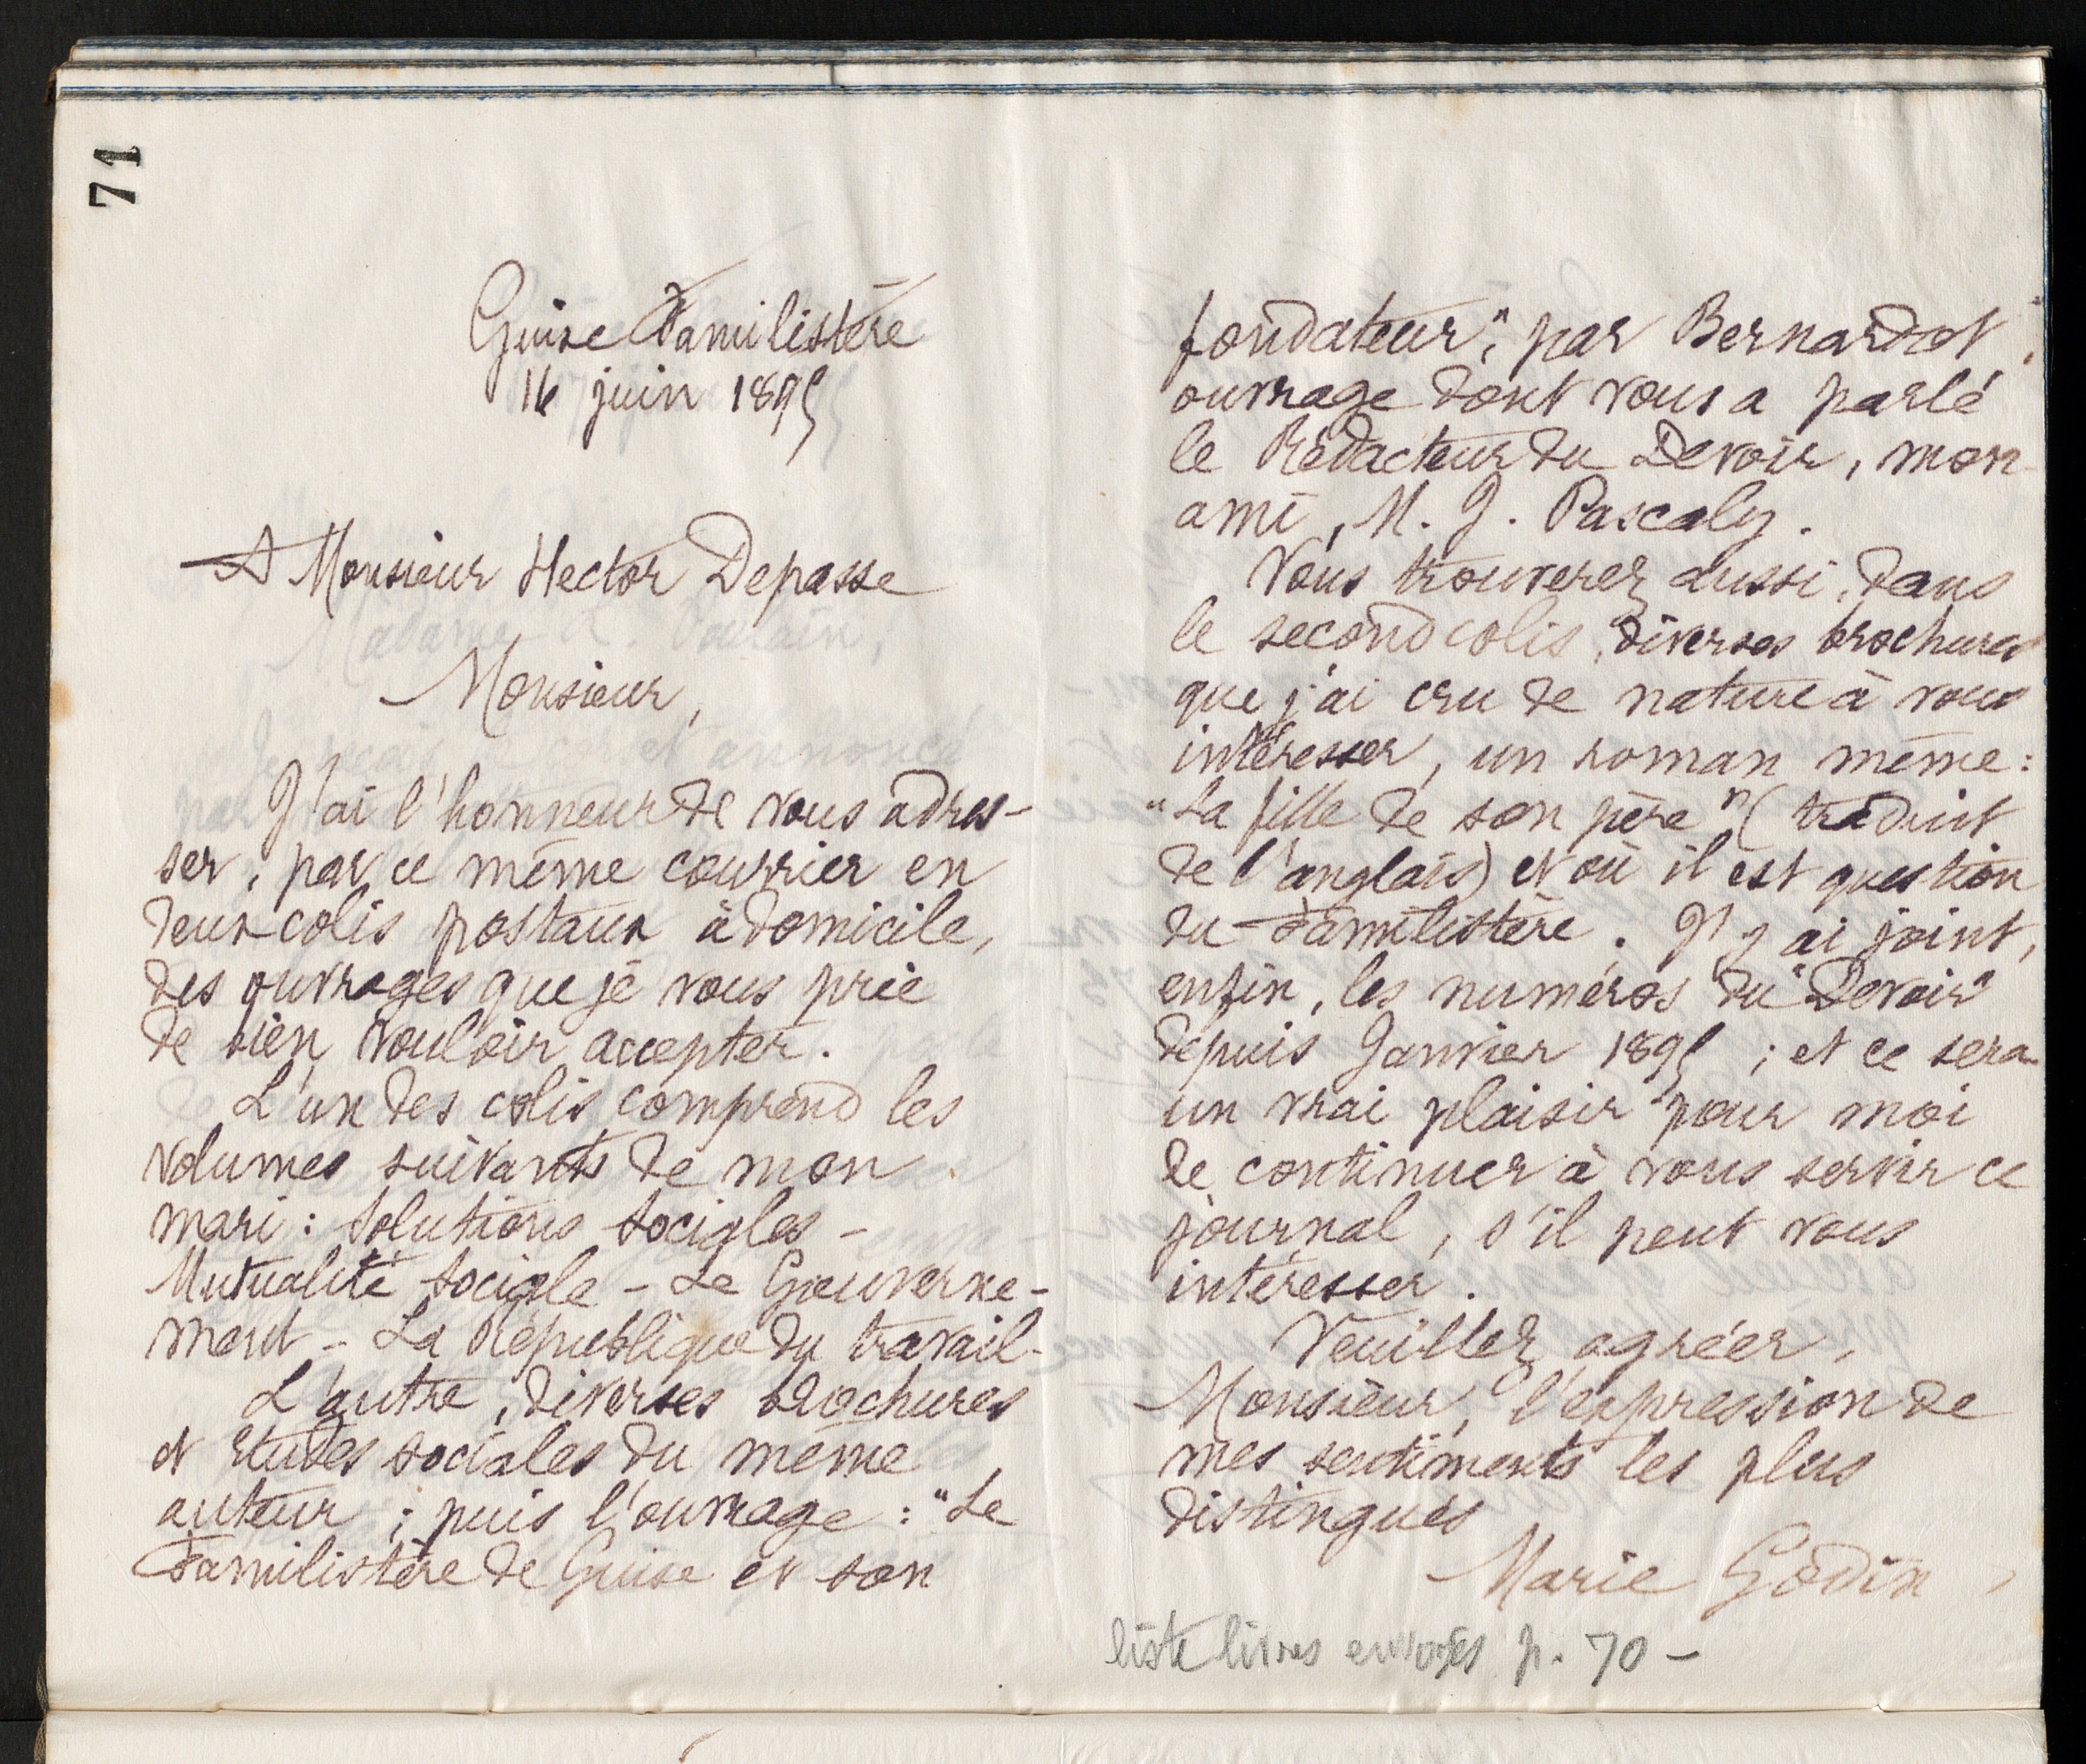 71
Guise Familistère
16 juin 1895
A Monsieur Hector Depasse
Monsieur,
J'ai l'honneur de vous adres-
ser, par ce même courrier en
deux colis postaux à domicile,
des ouvrages que je vous prie
de bien vouloir accepter.
L'un des colis comprend les
volumes suivants de mon
mari : Solutions sociales -
Mutualité sociale - Le Gouverne-
ment - La République du travail -
L'autre, diverses brochures
et études sociales du même
auteur ; puis l'ouvrage : "Le
Familistère de Guise et son
fondateur", par Bernardot,
ouvrage dont vous a parlé
le Rédacteur du Devoir, mon
ami, M. J. Pascaly.
Vous trouverez aussi, dans
le second colis, diverses brochures
que j'ai cru de nature à vous
intéresser, un roman même :
"La fille de son père" (traduit
de l'anglais) et où il est question
du Familistère. J'y ai joint,
enfin, les numéros du "Devoir"
depuis Janvier 1895 ; et ce sera
un vrai plaisir pour moi
de continuer à vous servir ce
journal, s'il peut vous
intéresser.
Veuillez agréer,
Monsieur, l'expression de
mes sentiments les plus
distingués
Marie Godin
liste livres envoyés p. 70 -